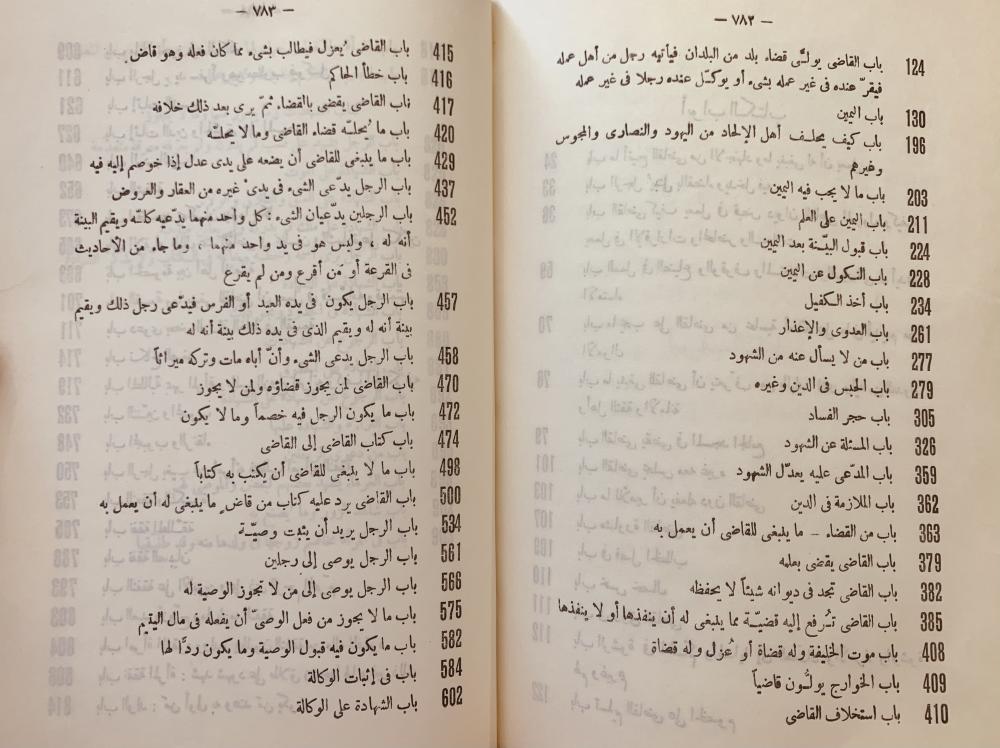 — ٧٨٢ —
124 باب القاضى يولَّى قضاء بلد من البلدان فيأتيه رجل من أهل عمله
فيقرّ عنده فى غير عمله بشىء أو يوكّل عنده رجلا فى غير عمله
130 باب اليمين
196 باب كيف يحلف أهل الإلحاد من اليهود والنصارى والمجوس
وغيرهم
203 باب ما لا يجب فيه اليمين
211 باب اليمين على العلم
224 باب قبول البيّنة بعد اليمين
228 باب النكول عن اليمين
234 باب أخذ الكفيل
261 باب العدوى والإعذار
277 باب من لا يسأل عنه من الشهود
279 باب الحبس فى الدين وغيره
305 باب حجر الفساد
326 باب المسئلة عن الشهود
359 باب المدّعى عليه يعدّل الشهود
362 باب الملازمة فى الدين
363 باب من القضاء – ما ينبغى للقاضى أن يعمل به
379 باب القاضى يقضى بعلمه
382 باب القاضى تجد فى ديوانه شيئاً لا يحفظه
385 باب القاضى تُرفع إليه قضيّة مما ينبغى له أن ينفذها أو لا ينفذها
408 باب موت الخليفة وله قضاة أو عُزل وله قضاة
409 باب الخوارج يولُّون قاضياً
410 باب استخلاف القاضى
— ٧٨٣ —
415 باب القاضى يُعزل فيطالب بشىء مما كان فعله وهو قاض
416 باب خطأ الحاكم
417 ناب القاضى يقضى بالقضاء ثمّ يرى بعد ذلك خلافه
420 باب ما يُحلّه قضاء القاضى وما لا يحلّه
429 باب ما ينبغى للقاضى أن يضعه على يدى عدل إذا خوصم إليه فيه
437 باب الرجل يدّعى الشىء فى يدى غيره من العقار والعروض
452 باب الرجلين يدّعيان الشىء : كل واحد منهما يدّعيه كلّه ويقيم البينة
أنه له ، وليس هو فى يد واحد منهما ، وما جاء من الأحاديث
فى القرعة أو مَن أقرع ومن لم يقرع
457 باب الرجل يكون فى يده العبد أو الفرس فيدّعى رجل ذلك ويقيم
بينة أنه له ويقيم الذى فى يده ذلك بينة أنه له
458 باب الرجل يدعى الشىء وأنّ أباه مات وتركه ميراثاً
470 باب القاضى لمن يجوز قضاؤه ولمن لا يجوز
472 باب ما يكون الرجل فيه خصماً وما لا يكون
474 باب كتاب القاضى إلى القاضى
498 باب ما لا ينبغى للقاضى أن يكتب به كتاباً
500 باب القاضى يرد عليه كتاب من قاضٍ ما ينبغى له أن يعمل به
534 باب الرجل يريد أن يثبت وصيّة
561 باب الرجل يوصى إلى رجلين
566 باب الرجل يوصى إلى من لا تجوز الوصية له
575 باب ما لا يجوز من فعل الوصىّ أن يفعله فى مال اليتيم
582 باب ما يكون فيه قبول الوصية وما يكون ردًّا لها
584 باب فى إثبات الوكالة
602 باب الشهادة على الوكالة